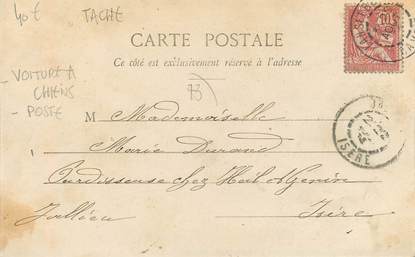 40 € TACHE
CARTE POSTALE
Ce côté est exclusivement réservé à l'adresse
- VOITURE A
CHIENS
- POSTE
13
M Mademoiselle
Marie Durand
Ourdisseuse chez
Jallieu Isère
ISÈRE